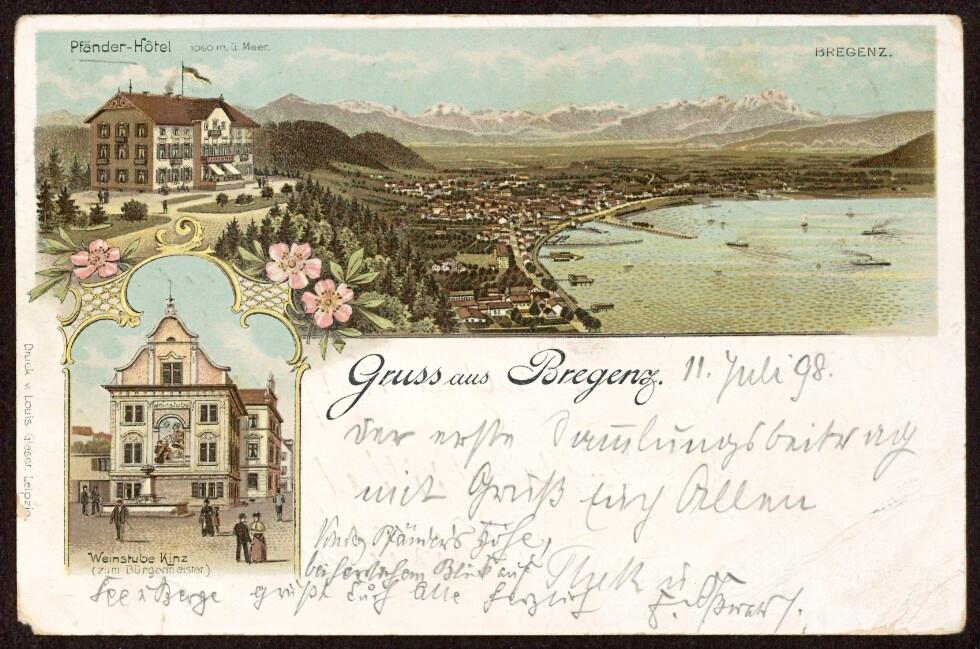 Pfänder-Hôtel 1060 m. ü. Meer.
BREGENZ.
Weinstube
Weinstube Kinz
(zum Bürgermeister)
Druck v. Louis Glaser, Leipzig.
Gruss aus Bregenz. 11. Juli 98.
Der erste Sammlungsbeitrag
mit Gruß Euch Allen
Pfänders Höhe,
bei herrlichem Blick auf
See u Berge grüßt Euch Alle herzlich